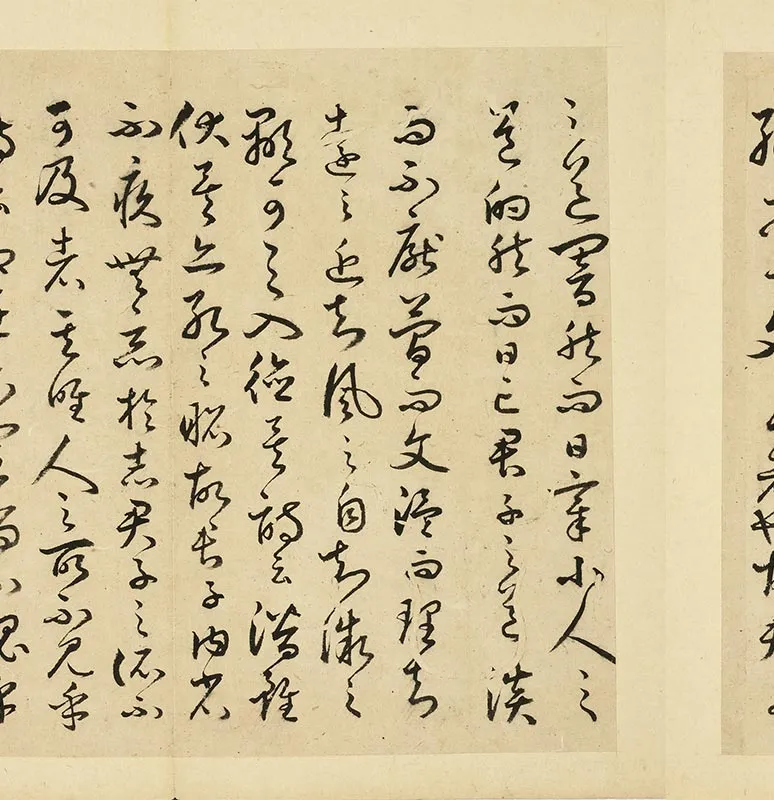 之道闇然而日章小人之
道的然而日亡君子之道淡
而不厭簡而文溫而理知
遠之近知風之自知微之
顯可與入德矣詩云潛雖
伏矣亦孔之昭故君子內省
不疚無惡於志君子之所不
可及者其唯人之所不見乎